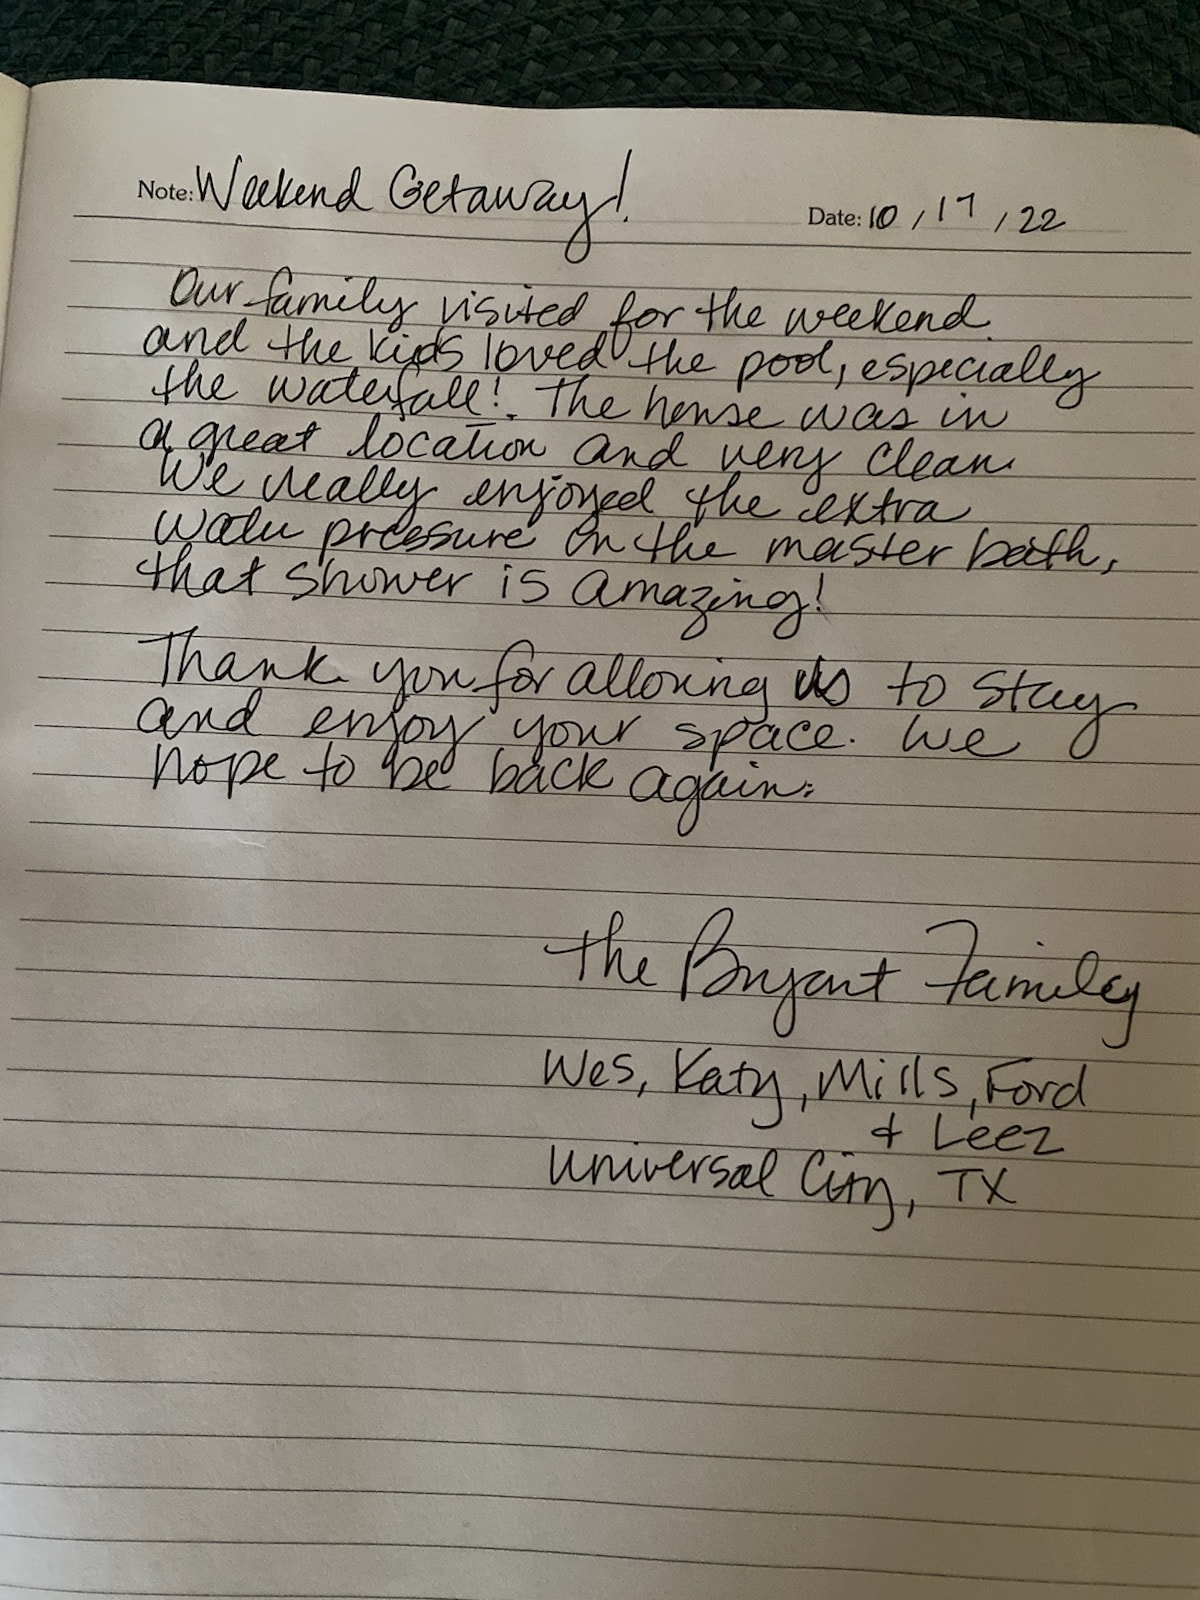 Note: Weekend Getaway!
Date: 10/17/22
Our family visited for the weekend
and the kids loved the pool, especially
the waterfall! The house was in
a great location and very clean.
We really enjoyed the extra
water pressure on the master bath,
that shower is amazing!
Thank you for alloning us to stay
and enjoy your space. We
hope to be back again.
The Bryant Family
Wes, Katy, Mills, Ford
+ Leez
Universal City, TX